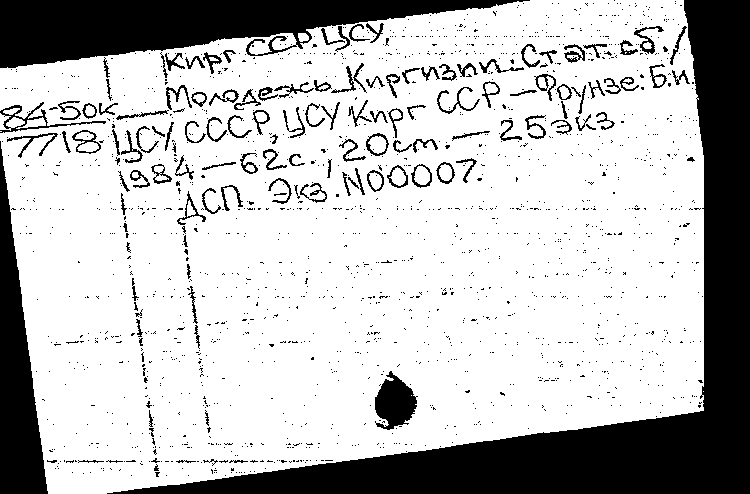 Кирг. ССР. ЦСУ.
Молодежь Киргизии: Стат. сб. /
84-50к
7718
ЦСУ СССР, ЦСУ Кирг ССР. — Фрунзе: Б.и
1984. — 62с.; 20см. — 25экз.
ДСП. Экз. N00007.